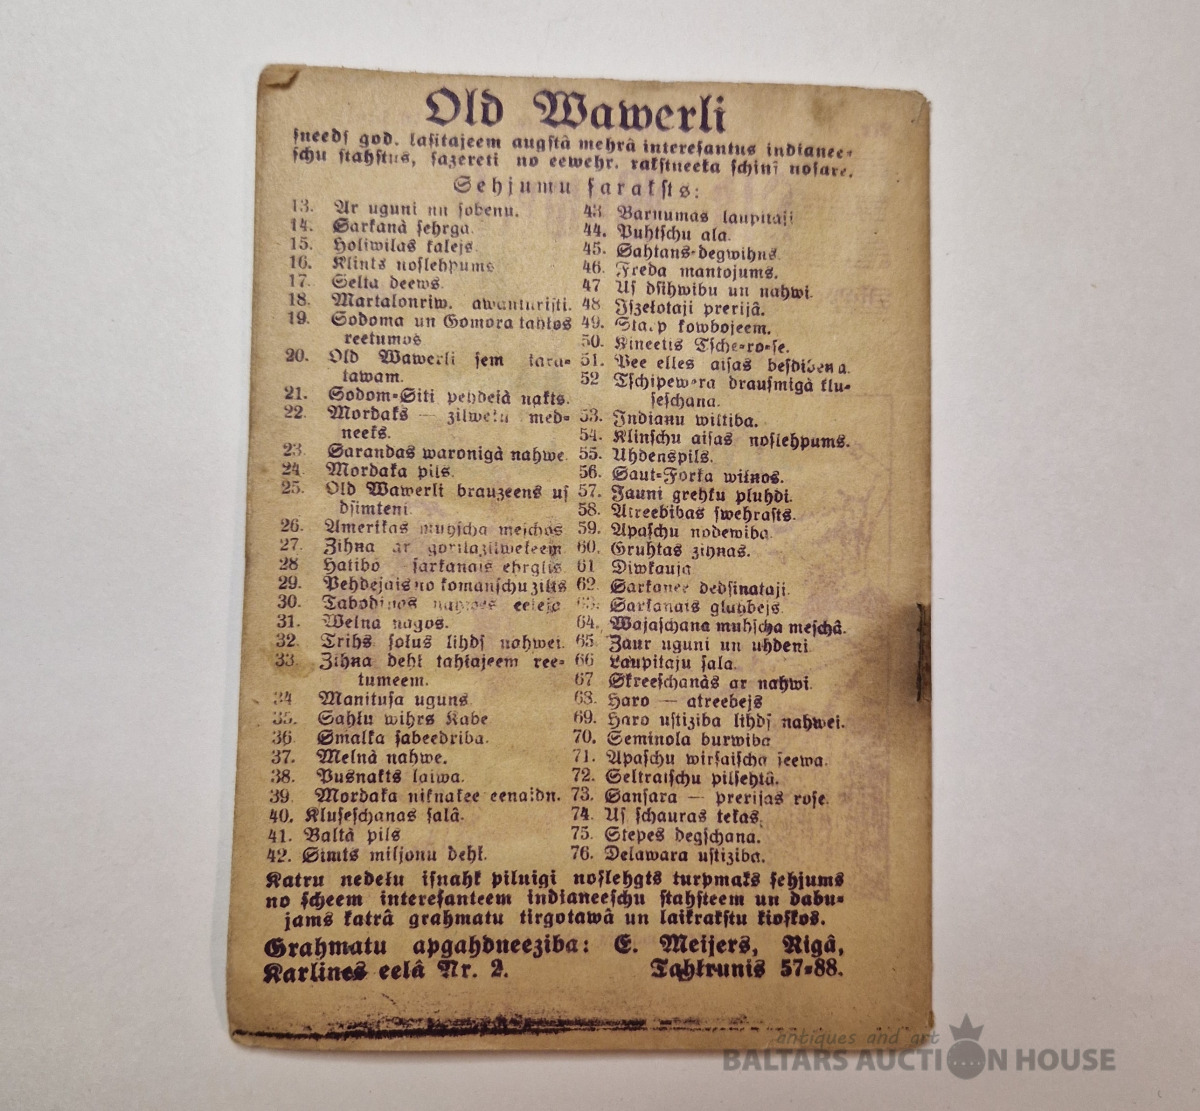 Old Wawerli
sneeds god. lasitajeem augstâ mehrâ interesantus indianee-
schu stahstus, sazereti no eewehr. rakstneeka schini nosare.
Sehjumu saraksts:
13. Ar uguni un sobenu.
14. Sarkanà sehrga.
15. Holiwilas kalejs
16. Klints noslehpums
17. Selta deews.
18. Martalonriw. awanturisti.
19. Sodoma un Gomora tahlos
reetumos
20. Old Wawerli sem tara-
tawam.
21. Sodom-Siti pehdejà nakts.
22. Mordaks — zilweku med-
neeks.
23. Sarandas waronigà nahwe.
24. Mordaka pils.
25. Old Wawerli brauzeens us
dsimteni.
26. Amerikas muhscha meschos
27. Zihna ar gorilazilwekeem.
28 Hatibo sarkanais ehrglis.
29. Pehdejais no komanschu zilts
30. nahwes eeleja
31. Welna nagos.
32. Trihs solus lihds nahwei.
33. Zihna dehl tahlajeem ree-
tumeem.
34 Manitusa uguns
35. Sahlu wihrs Kabe
36. Smalka sabeedriba.
37. Melnà nahwe.
38. Pusnakts laiwa.
39. Mordaka niknakee eenaidn.
40. Kluseschanas salâ.
41. Baltà pils
42. Simts miljonu dehl.
43. Barnumas laupitaji
44. Puhtschu ala.
45. Sahtans-degwihns.
46. Freda mantojums.
47 Us dsihwibu un nahwi.
48 Issekotaji prerijâ.
49. Starp kowbojeem.
50. Kineetis Tsche-ro-se.
51. Pee elles aisas besdibena.
52 Tschipewera drausmigà klu-
seschana.
53. Indianu wiltiba.
54. Klinschu aisas noslehpums.
55. Uhdenspils.
56. Saut-Forka wilnos.
57. Jauni grehku pluhdi.
58. Atreebibas swehrasts.
59. Apaschu nodewiba.
60. Gruhtas zihnas.
61 Diwkauja
62. Sarkanee dedsinataji.
63. Sarkanais glahbejs.
64. Wajaschana muhscha meschâ.
65. Zaur uguni un uhdeni
66 Laupitaju sala.
67. Skreeschanàs ar nahwi.
68. Haro — atreebejs
69. Haro ustiziba lihds nahwei.
70. Seminola burwiba
71. Apaschu wirsaischa seewa.
72. Seltraischu pilsehtâ.
73. Sansara — prerijas rose.
74. Us schauras tekas.
75. Stepes degschana.
76. Delawara ustiziba.
Katru nedelu isnahk pilnigi noslehgts turpmaks sehjums
no scheem interesanteem indianeeschu stahsteem un dabu-
jams katrâ grahmatu tirgotawâ un laikrakstu kioskos.
Grahmatu apgahdneeziba: E. Meijers, Rigâ,
Karlines eelâ Nr. 2. Tahlrunis 57-88.
antiques and art
BALTARS AUCTION HOUSE